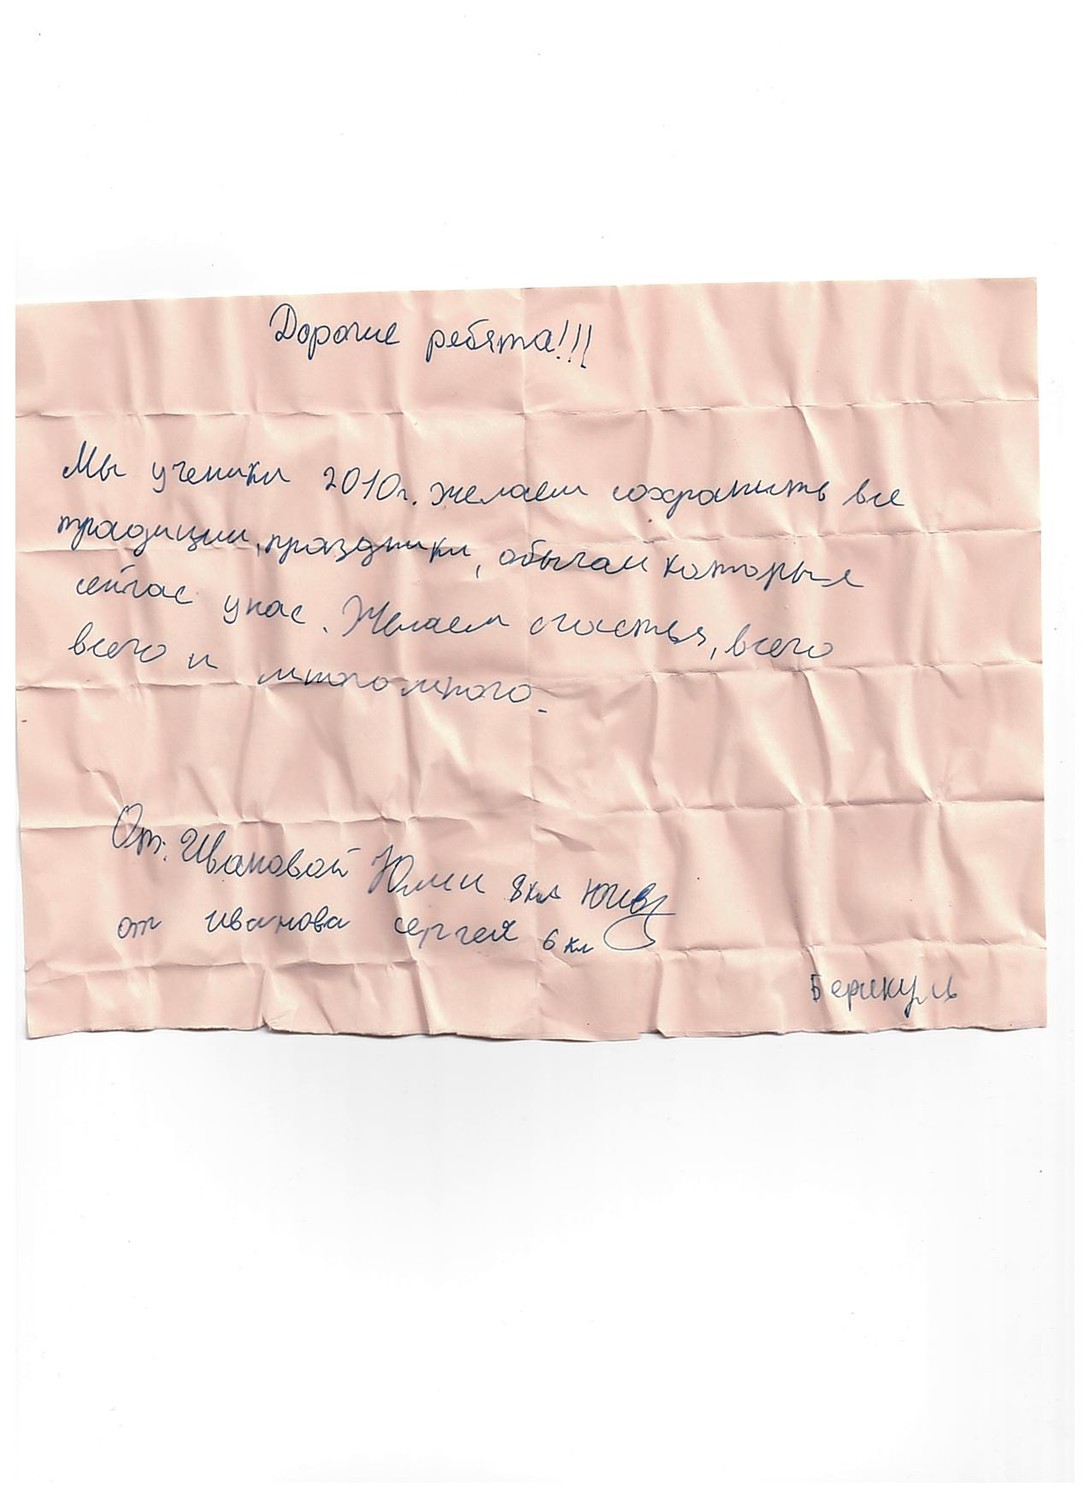 Дорогие ребята!!!
Мы ученики 2010г. желаем сохранить все
традиции, праздники, обычаи которые
сейчас у нас. Желаем счастья, всего
всего и много много.
От: Ивановой Юлии 8кл
от иванова сергея 6 кл
Берикуль